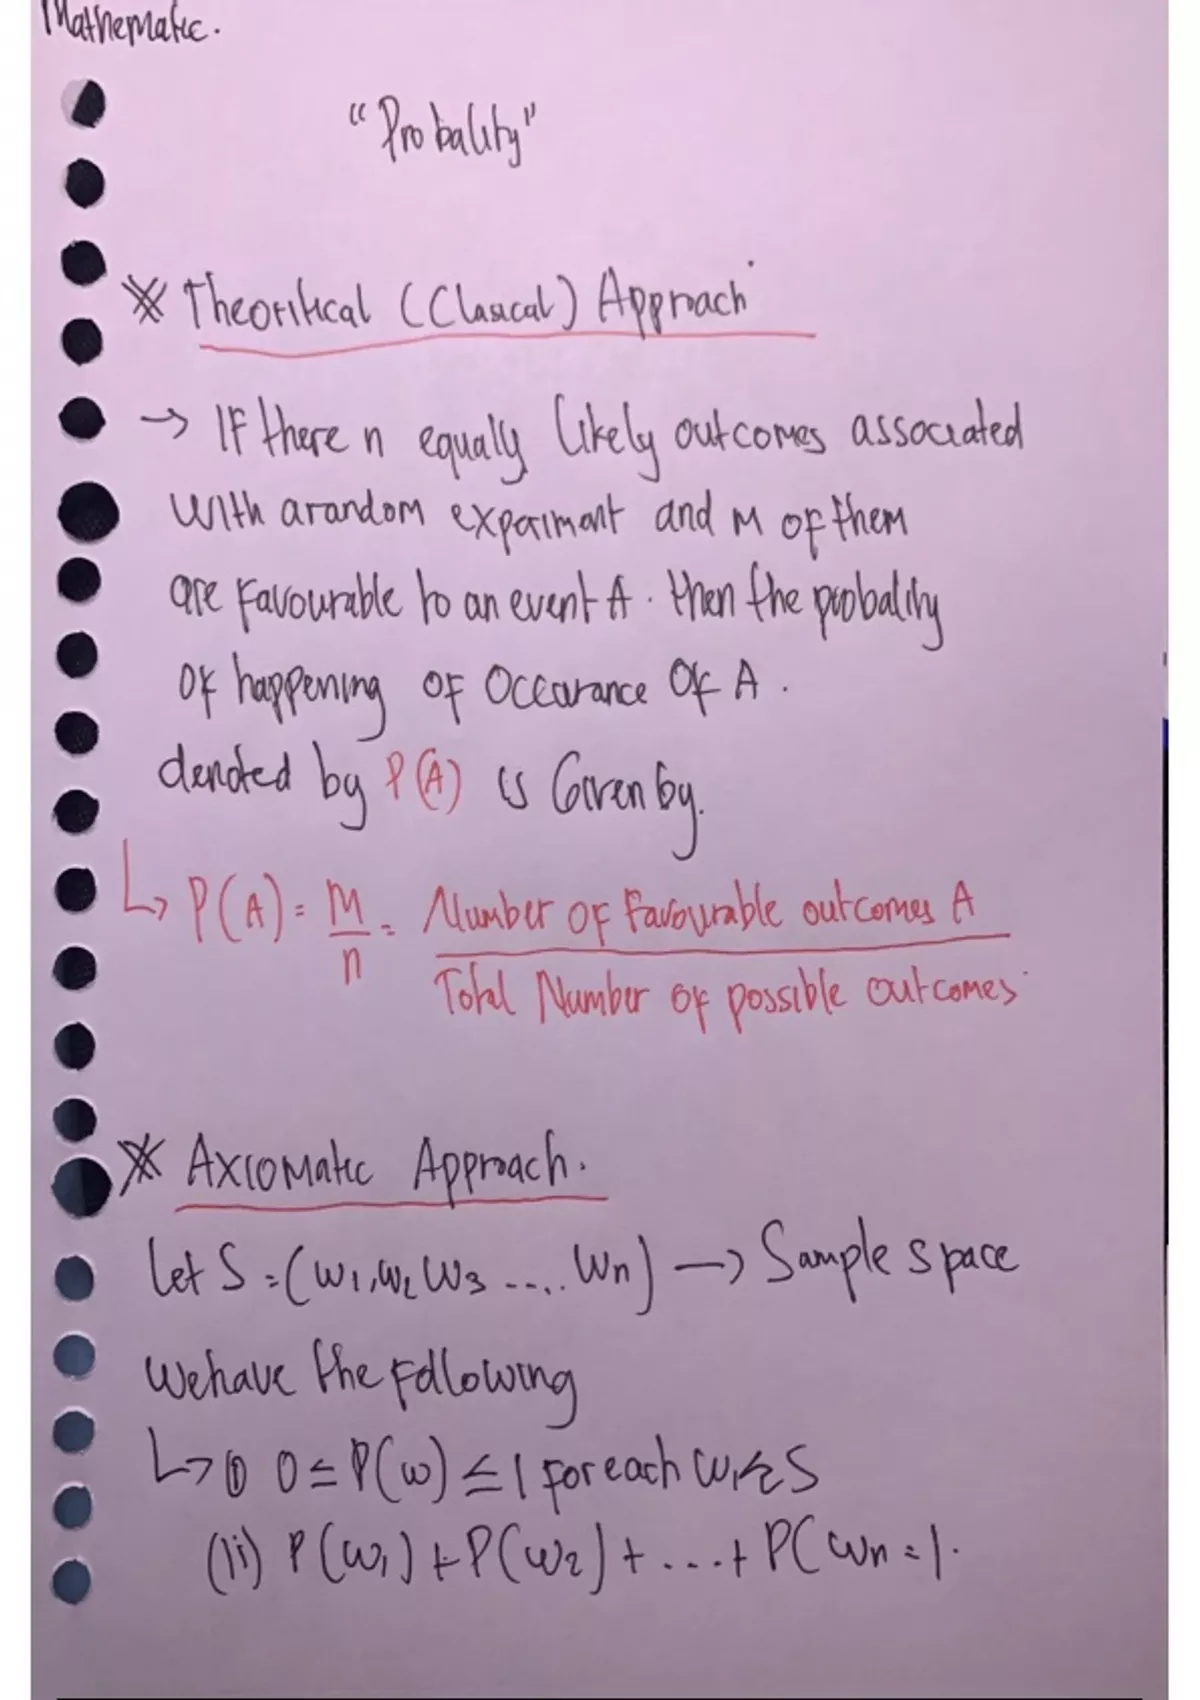 Mathematic.
"Probality"
※ Theoritical (Clasical) Approach
→ IF there n equally likely outcomes associated
with a random experimant and M of them
are favourable to an event A. then the probality
of happening of Occarance Of A.
denoted by P(A) is Given by.
↳ P(A) = M/n = Number of favourable outcomes A
Total Number of possible outcomes
※ Axiomatic Approach.
Let S = (W1, W2 W3 ..... Wn) → Sample space
We have the following
↳ (i) 0 ≤ P(w) ≤ 1 for each W1 ∈ S
(ii) P(W1) + P(W2) + ... + P(Wn = 1.